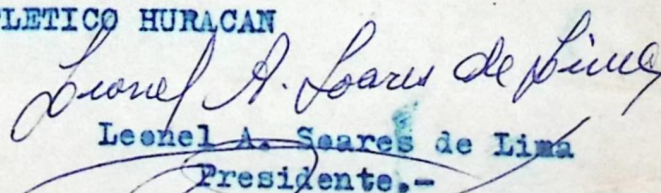 LETICO HURACAN
Leonel A. Soares de Lima
Leonel A. Soares de Lima
Presidente.-